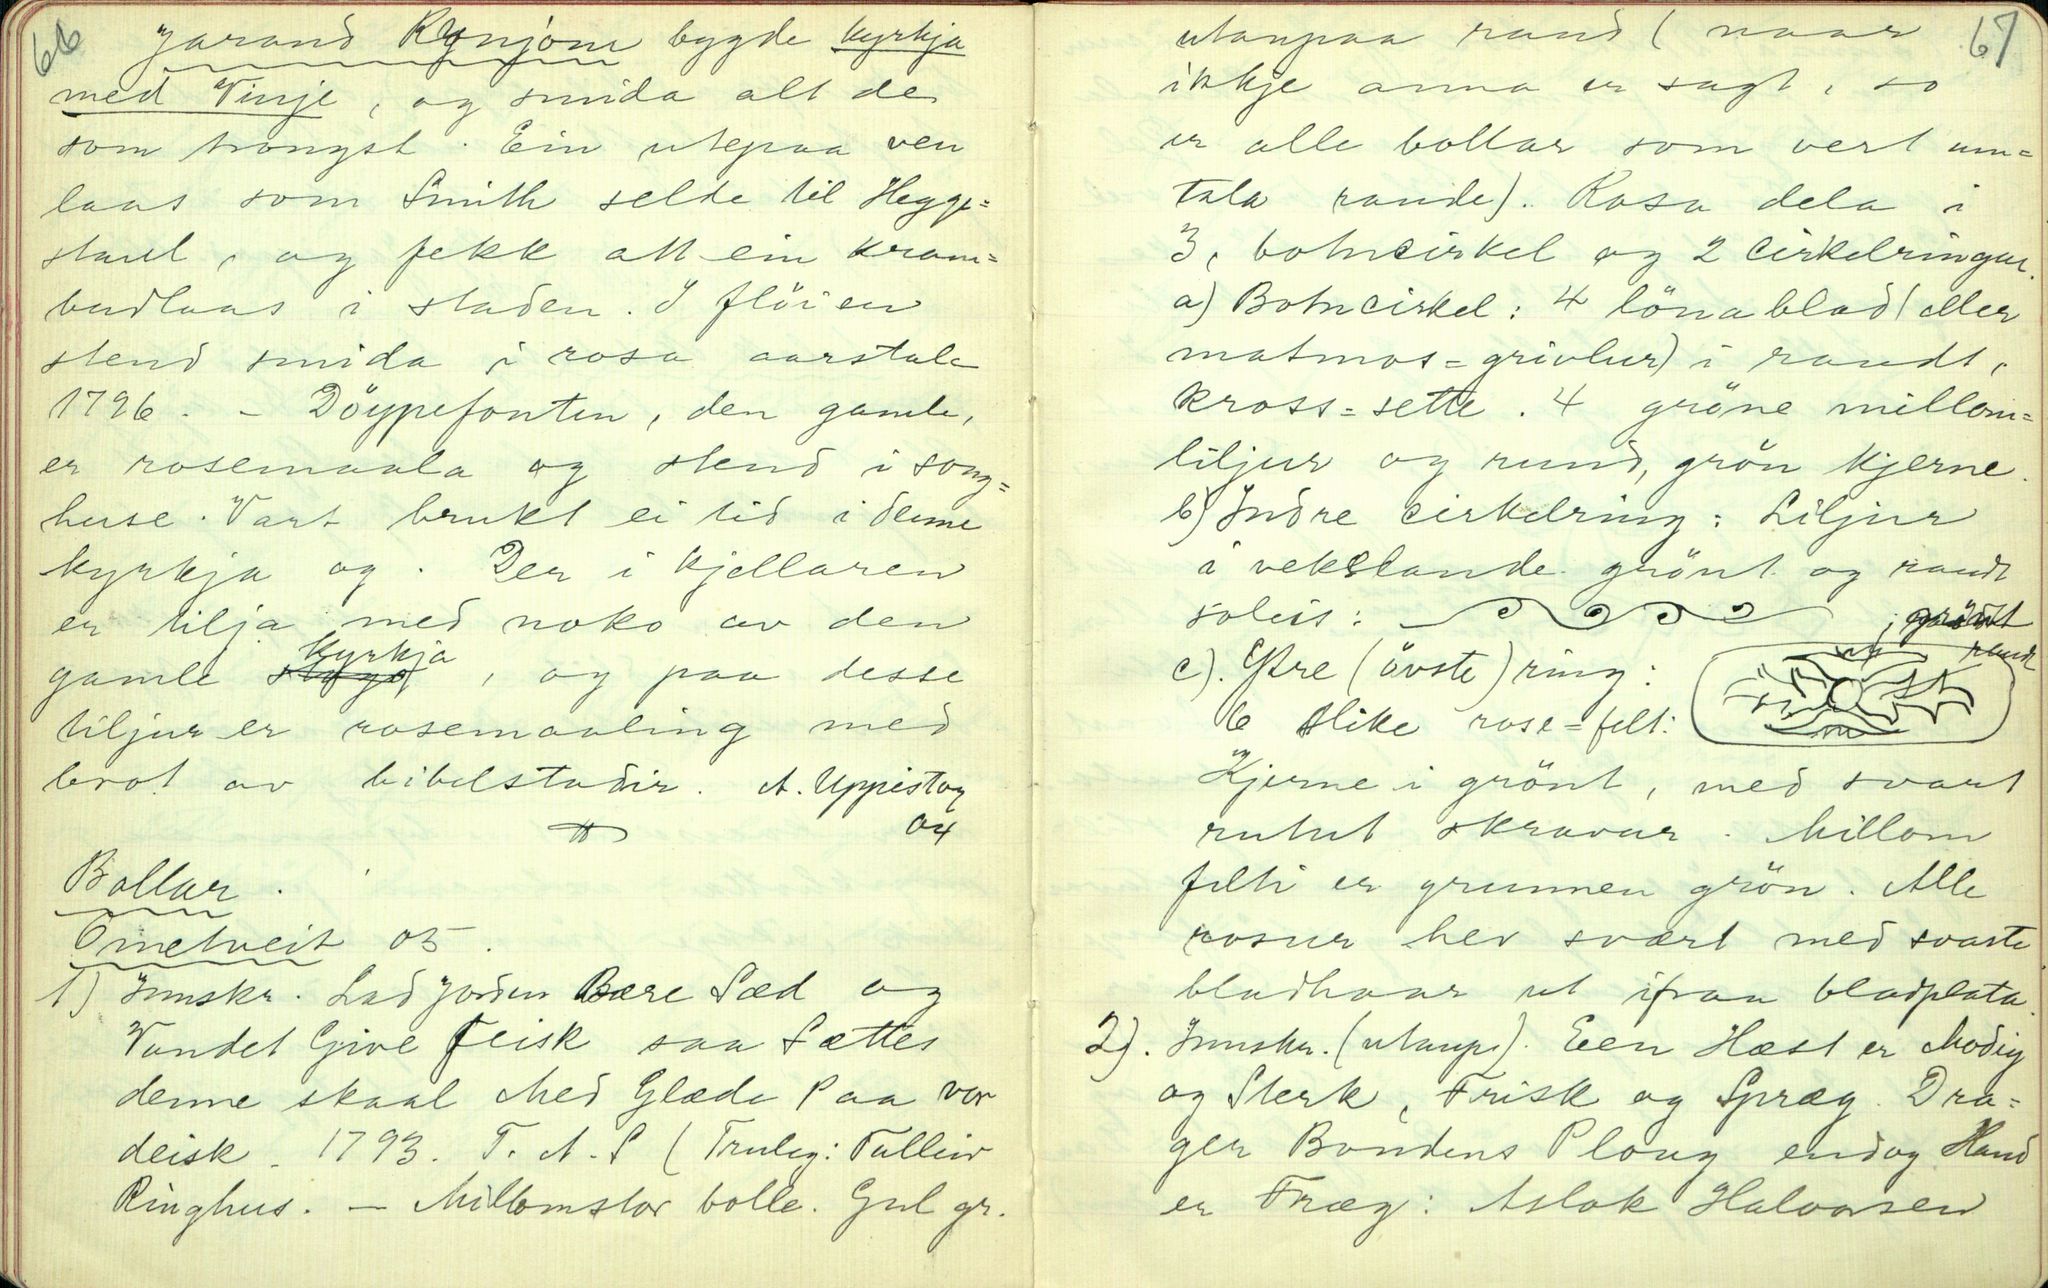 66
Jarand Rynjom bygde kyrkja
med Vinje, og smida alt de
som trongst. Ein utepaa ven
laas som Smith selde til Hegge=
stael, og fekk att ein kram=
budlaas i staden. I flöien
stend smida i rosa aarstale
1796. – Döypefonten, den gamle,
er rosemaala og stend i song=
huse. Vart brukt ei tid i denne
kyrkja og. Der i kjellaren
er tilja med noko av den
gamle kyrkja, og paa desse
tiljur er rosemaaling med
brot av bibelstadir. A. Uppistog
04
Bollar.
Ometveit 05.
1) Innskr. Lad Jorden Bære Sæd og
Vandet Give Feisk saa Sættes
denne skaal Med Glæde Paa vor
deisk. 1793. T. A. S (Truleg: Talleiv
Ringhus. – Millomstor bolle. Gul gr.
67
utanpaa raud (naar
ikkje anna er sagt, so
er alle bollar som vert um=
tala raude). Rosa dela i
3, botncirkel og 2 cirkelringar.
a) Botncirkel: 4 lönablad (eller
matmos=grivlur) i raudt,
kross=sette. 4 gröne millom=
liljur og rund, grön kjerne.
b) Indre cirkelring: Liljur
i vekslande grönt og raudt
soleis:
c). Ytre (övste) ring:
raud
6 slike rose=felt:
Kjerne i grönt, med svart
rutut skravur. Millom
felti er grunnen grön. Alle
rosur hev svært med svarte
bladhaar ut ifraa bladplata.
2). Innskr. (utanp.). Een Hæst er Modig
og Sterk, Frisk og Spræg. Dra=
ger Bondens Ploug endog Hand
er Træg: Aslak Halvorsen